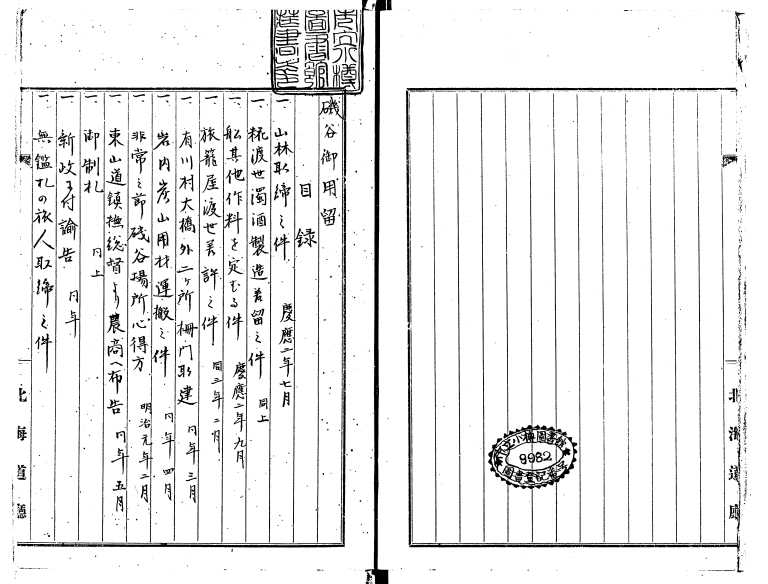 北海道廳
9982
市立小樽圖書館藏書之
磯谷御用留
目録
一、山林取締之件 慶應二年七月
一、糀渡世濁酒製造差留之件 同上
一、船其他作料を定むる件 慶應二年九月
一、旅籠屋渡世差許之件 同三年二月
一、有川村大橋外二ヶ所柵門取建 同年三月
一、岩内炭山用材運搬之件 同年四月
一、非常之節磯谷場所心得方 明治元年二月
一、東山道鎮撫総督より農商へ布告 同年五月
一、御制札 同上
一、新政ニ付諭告 同年
一、無鑑札の旅人取締之件
北海道廳